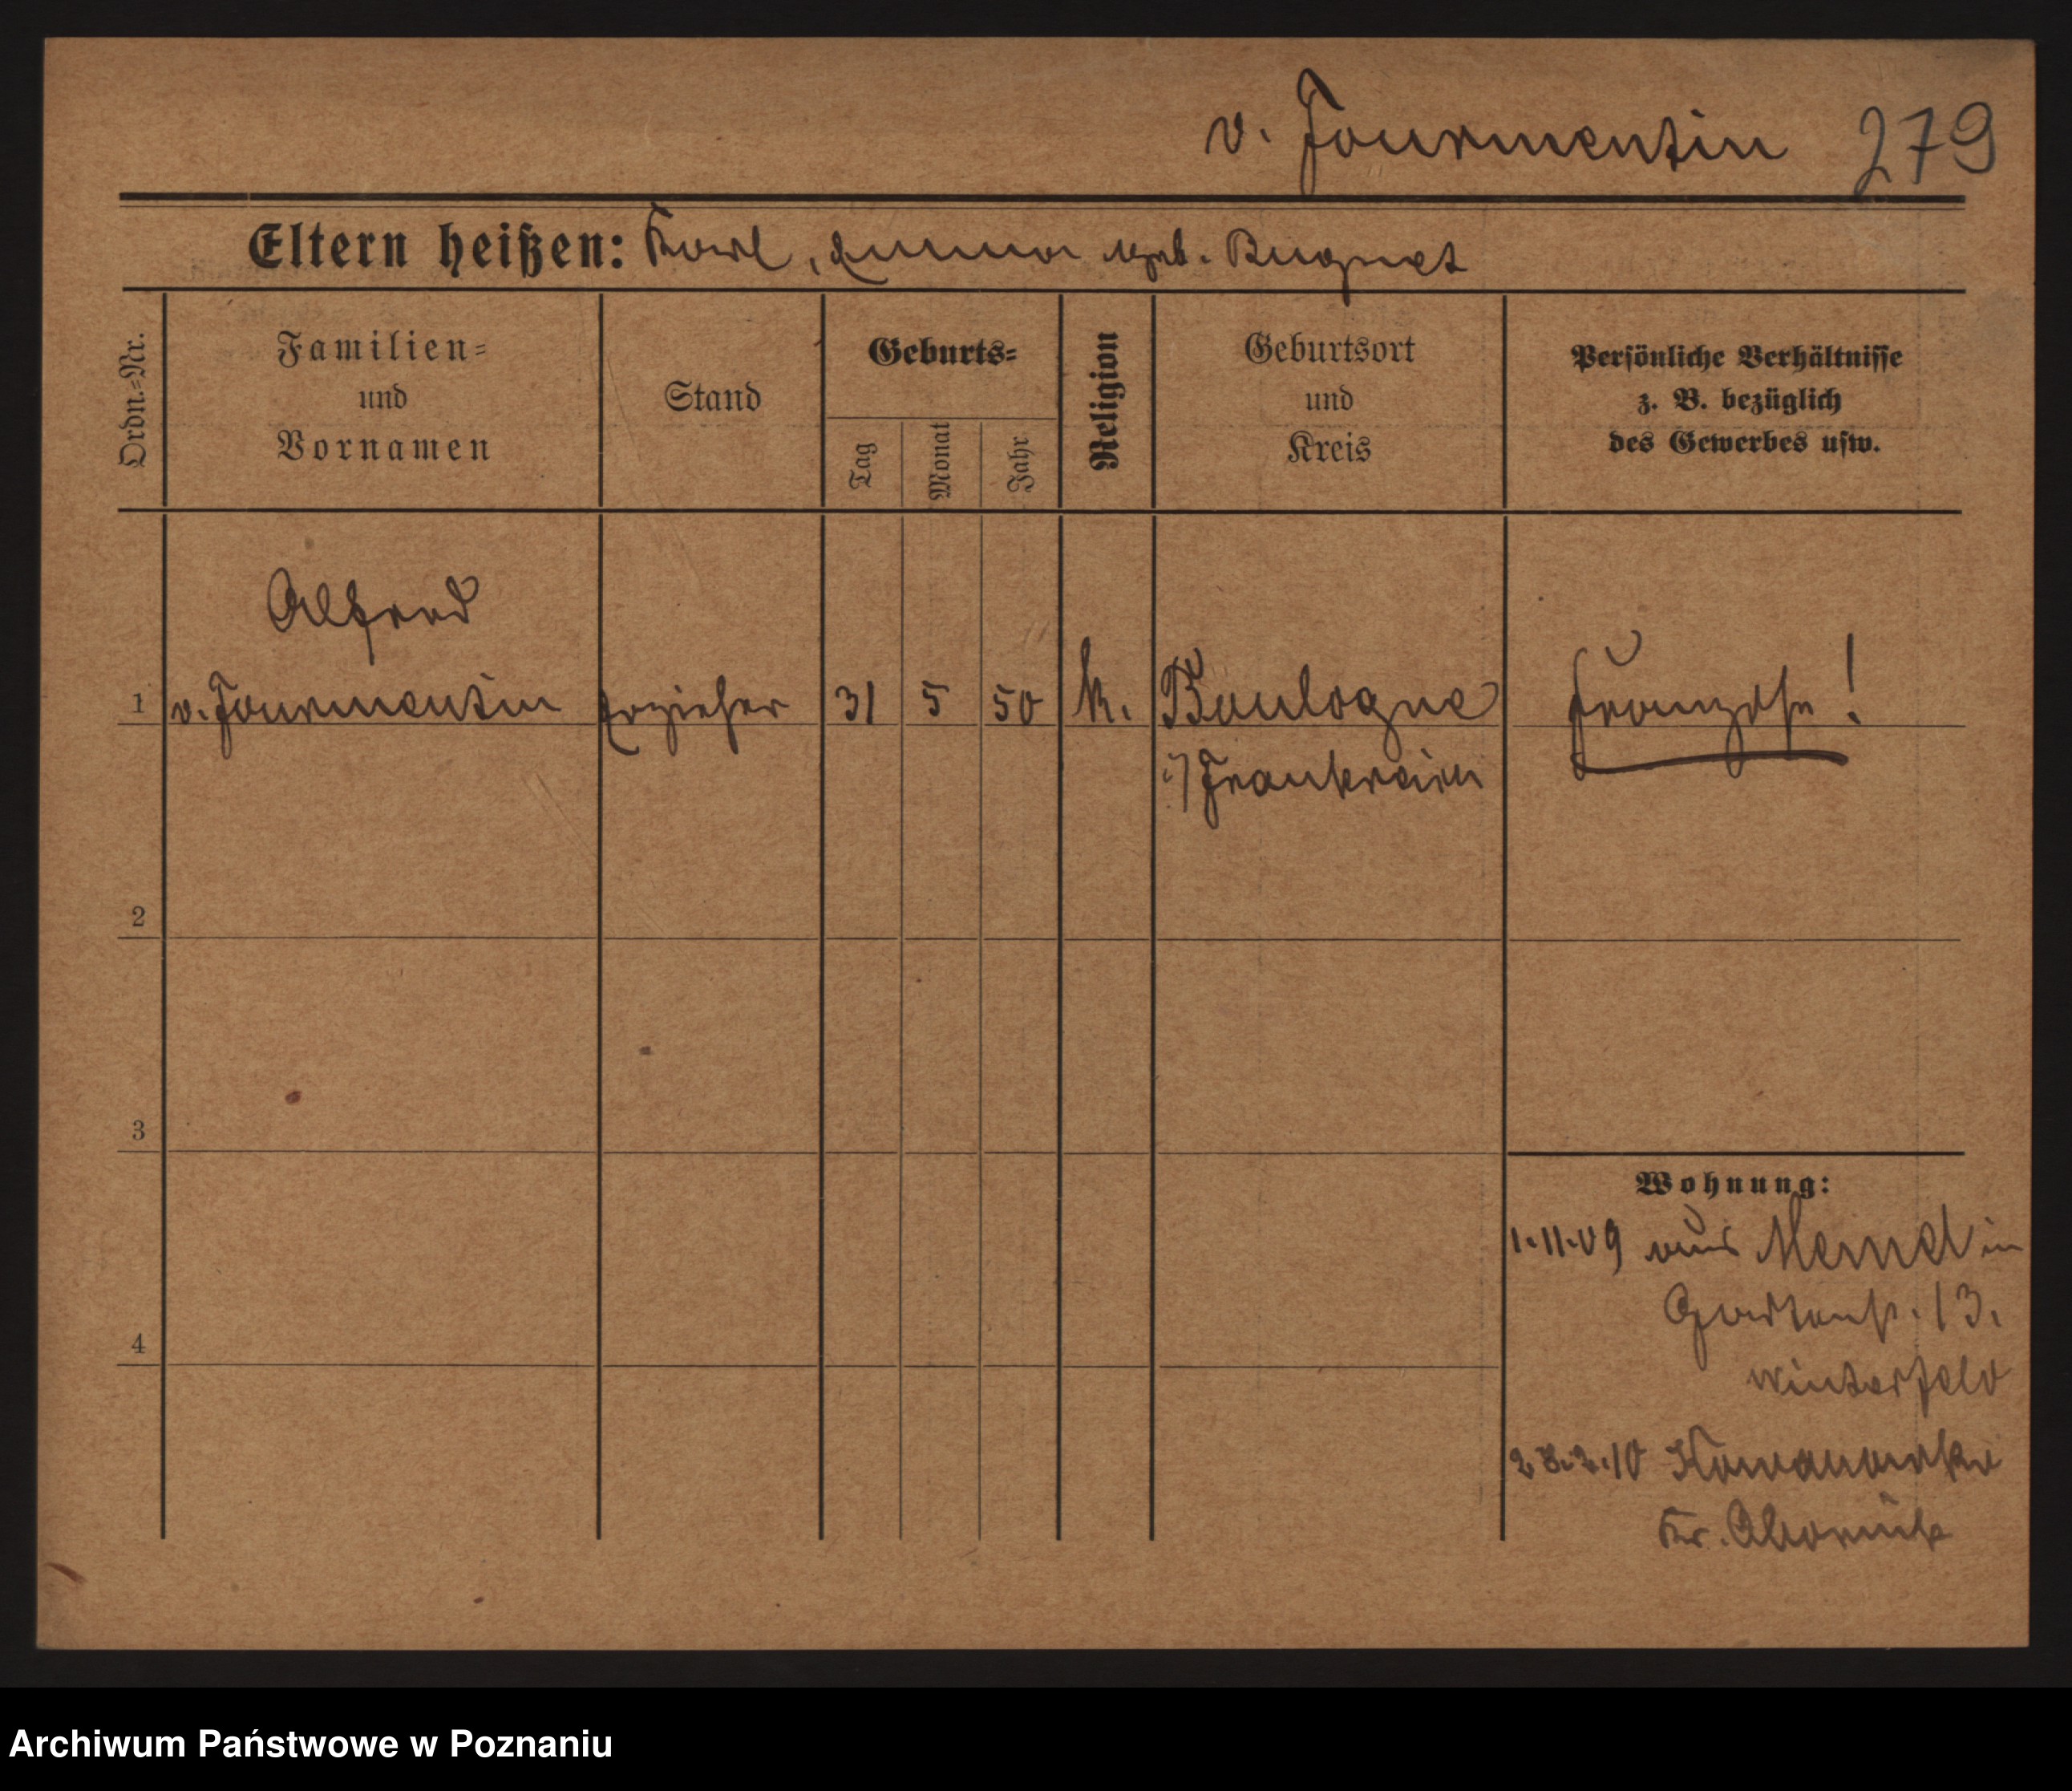 v. Fourmentin 279
Eltern heißen: Karl, Emma geb. Bugnet
Ordn.-Nr.
Familien-
und
Vornamen
Stand
Geburts-
Tag
Monat
Jahr
Religion
Geburtsort
und
Kreis
Persönliche Verhältnisse
z. B. bezüglich
des Gewerbes usw.
Alfred
1 v. Fourmentin Erzieher 31 5 50 k. Boulogne Franzose!
i/ Frankreich
2
3
Wohnung:
1.11.09 aus Memel in
Gartenstr. 13.
Winterfeld
4
28.2.10 Kowanowko
Kr. Obornik
Archiwum Państwowe w Poznaniu